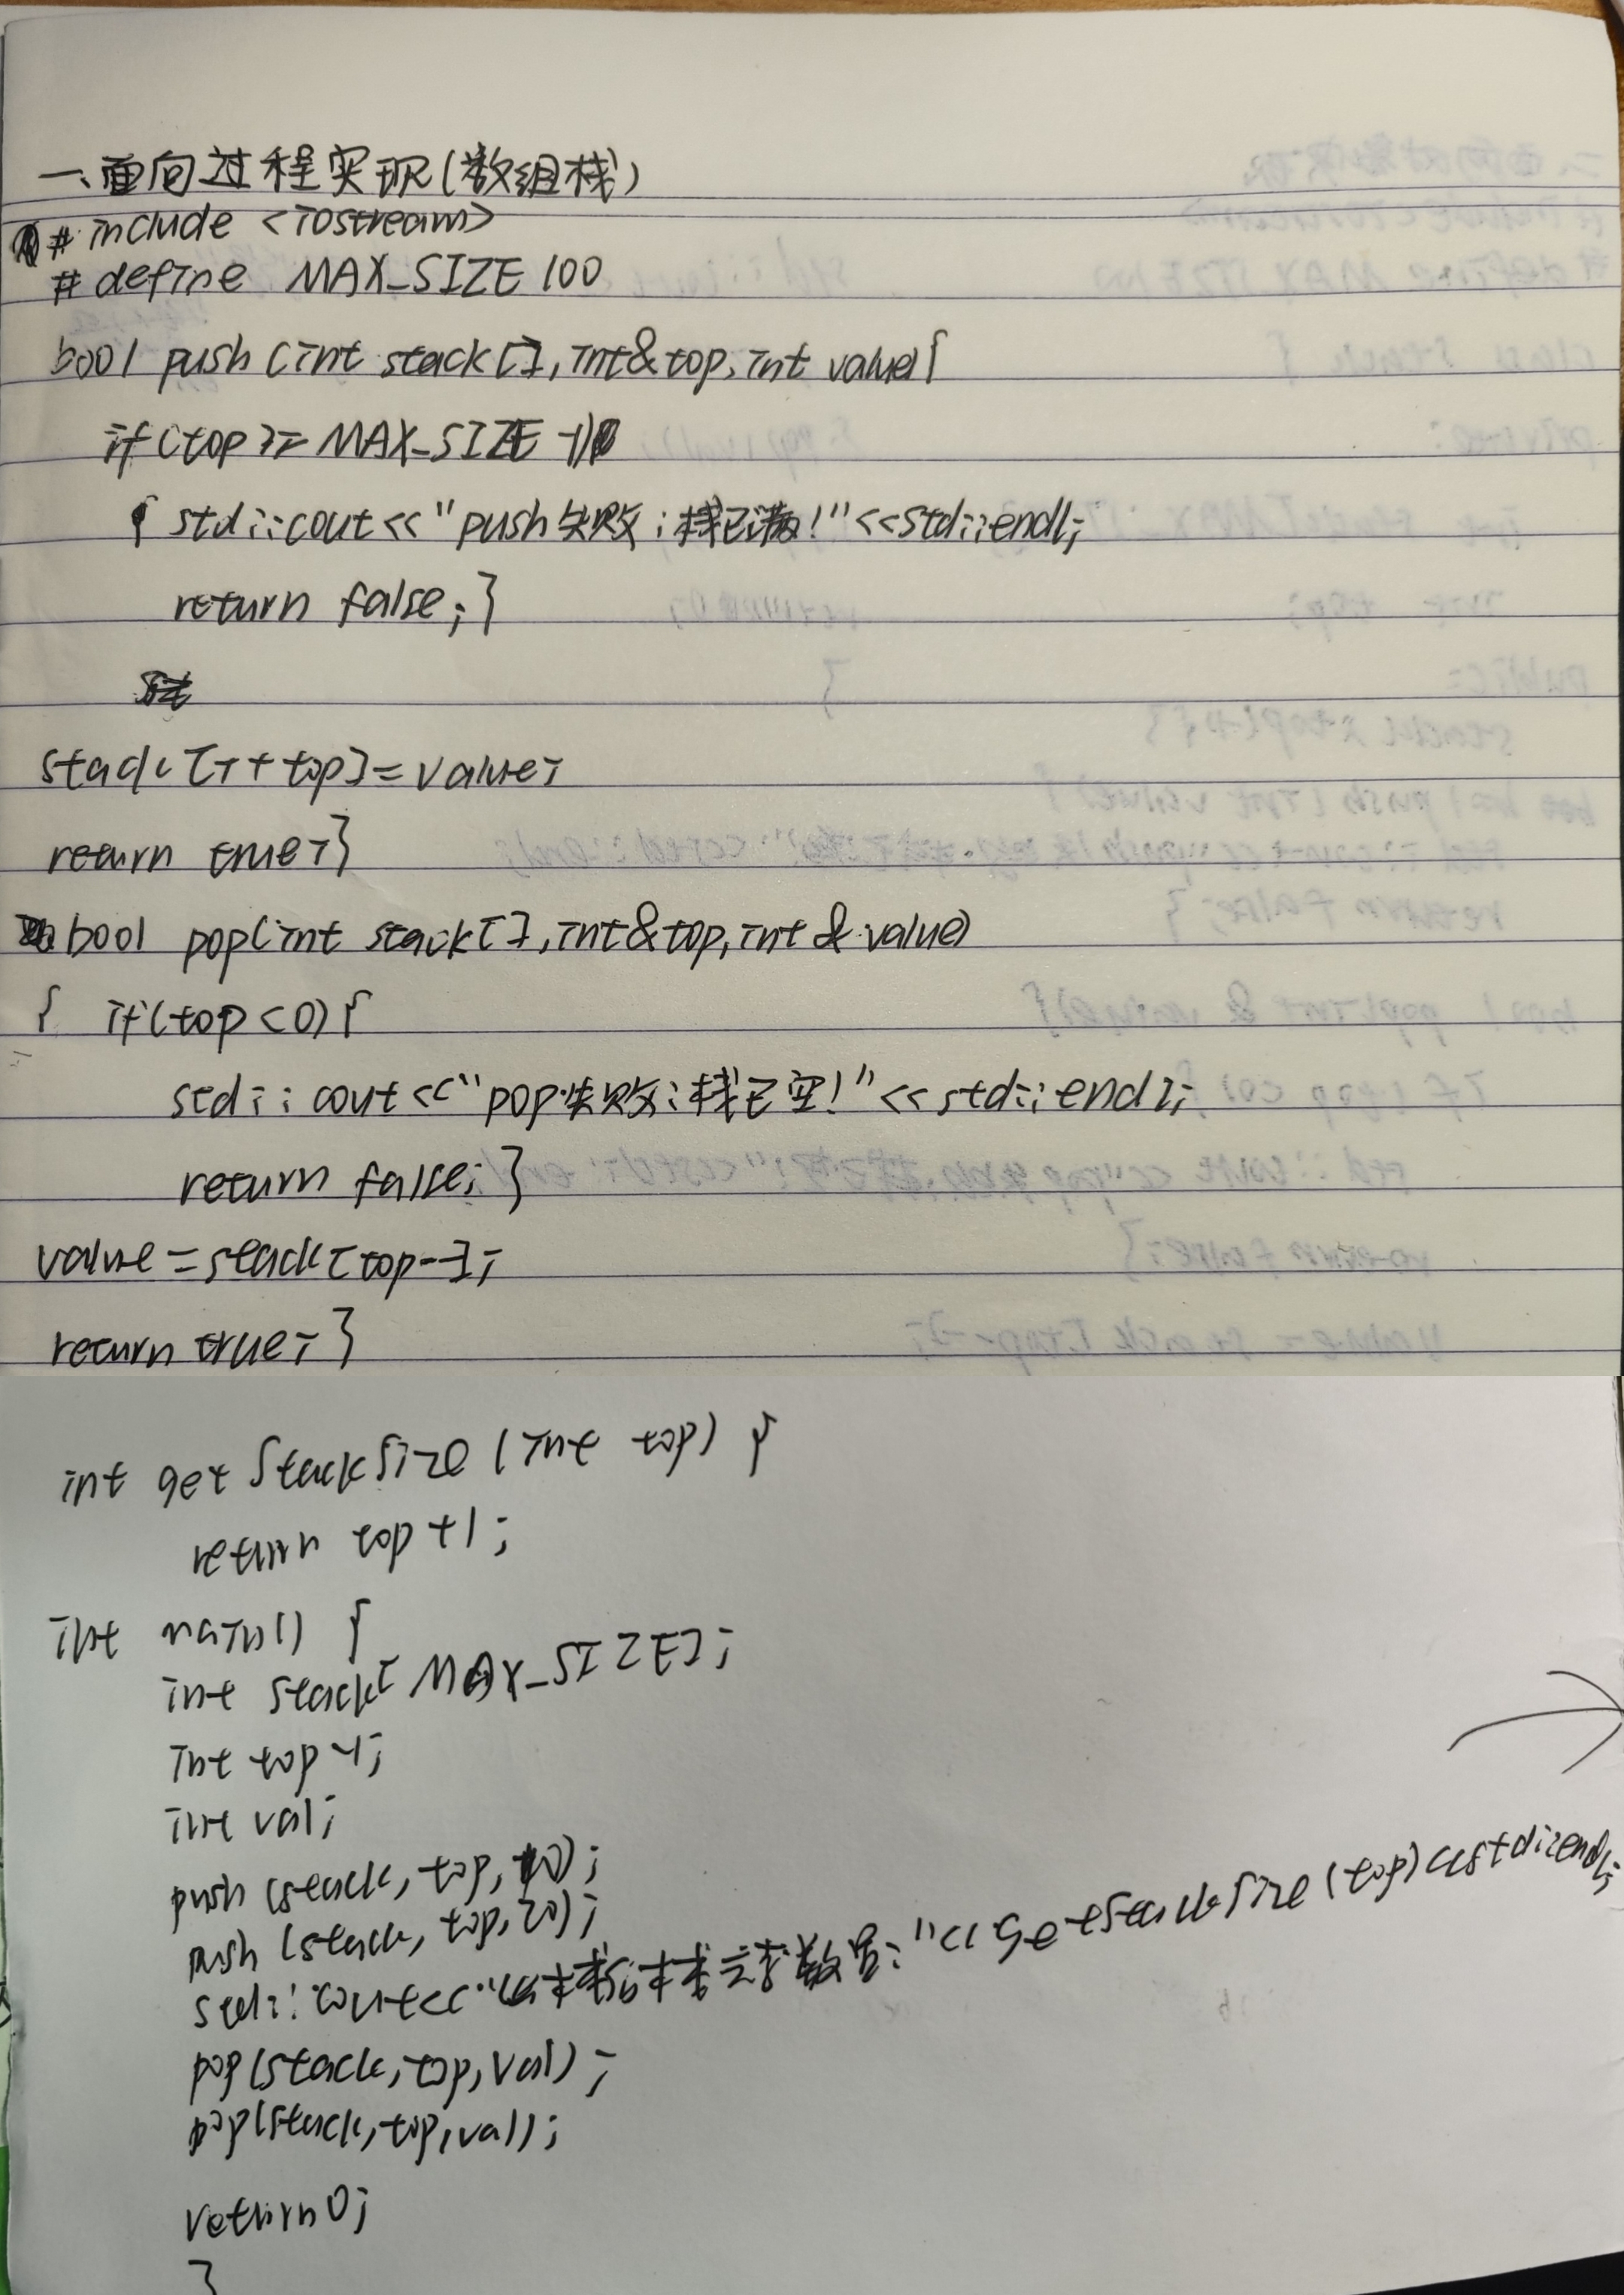 一、面向过程实现(数组栈)
# include <iostream>
# define MAX_SIZE 100
bool push (int stack[], int&top, int value){
if(top >= MAX_SIZE -1)
{ std::cout<<"push失败:栈已满!"<<std::endl;
return false; }
stack[++top]=value;
return true; }
bool pop(int stack[], int&top, int & value)
{ if(top<0){
std::cout<<"pop失败:栈已空!"<<std::endl;
return false; }
value=stack[top--];
return true; }
int getStackSize (int top) {
return top+1;
int main() {
int stack[MAX_SIZE];
int top-1;
int val;
push (stack, top, 10);
push (stack, top, 20);
std::cout<<"栈元素数量:"<<getStackSize(top)<<std::endl;
pop(stack, top, val);
pop(stack, top, val);
return 0;
}